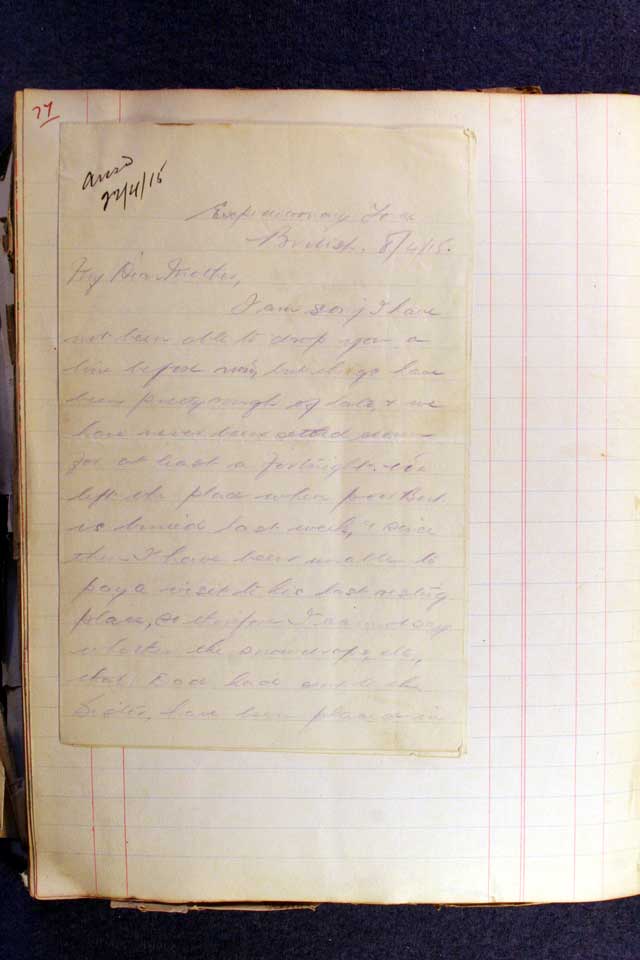 77
ansd
22/4/15
Expeditionary Force
British. 8/4/15.
My Dear Mother,
I am sorry I have
not been able to drop you a
line before now, but things have
been pretty rough of late, & we
have never been settled down
for at least a fortnight. We
left the place where poor Bert
is buried last week, & since
then I have been unable to
pay a visit to his last resting
place, so therefore I cannot say
whether the snowdrops, etc,
that Dad had sent to the
Sister, have been placed in